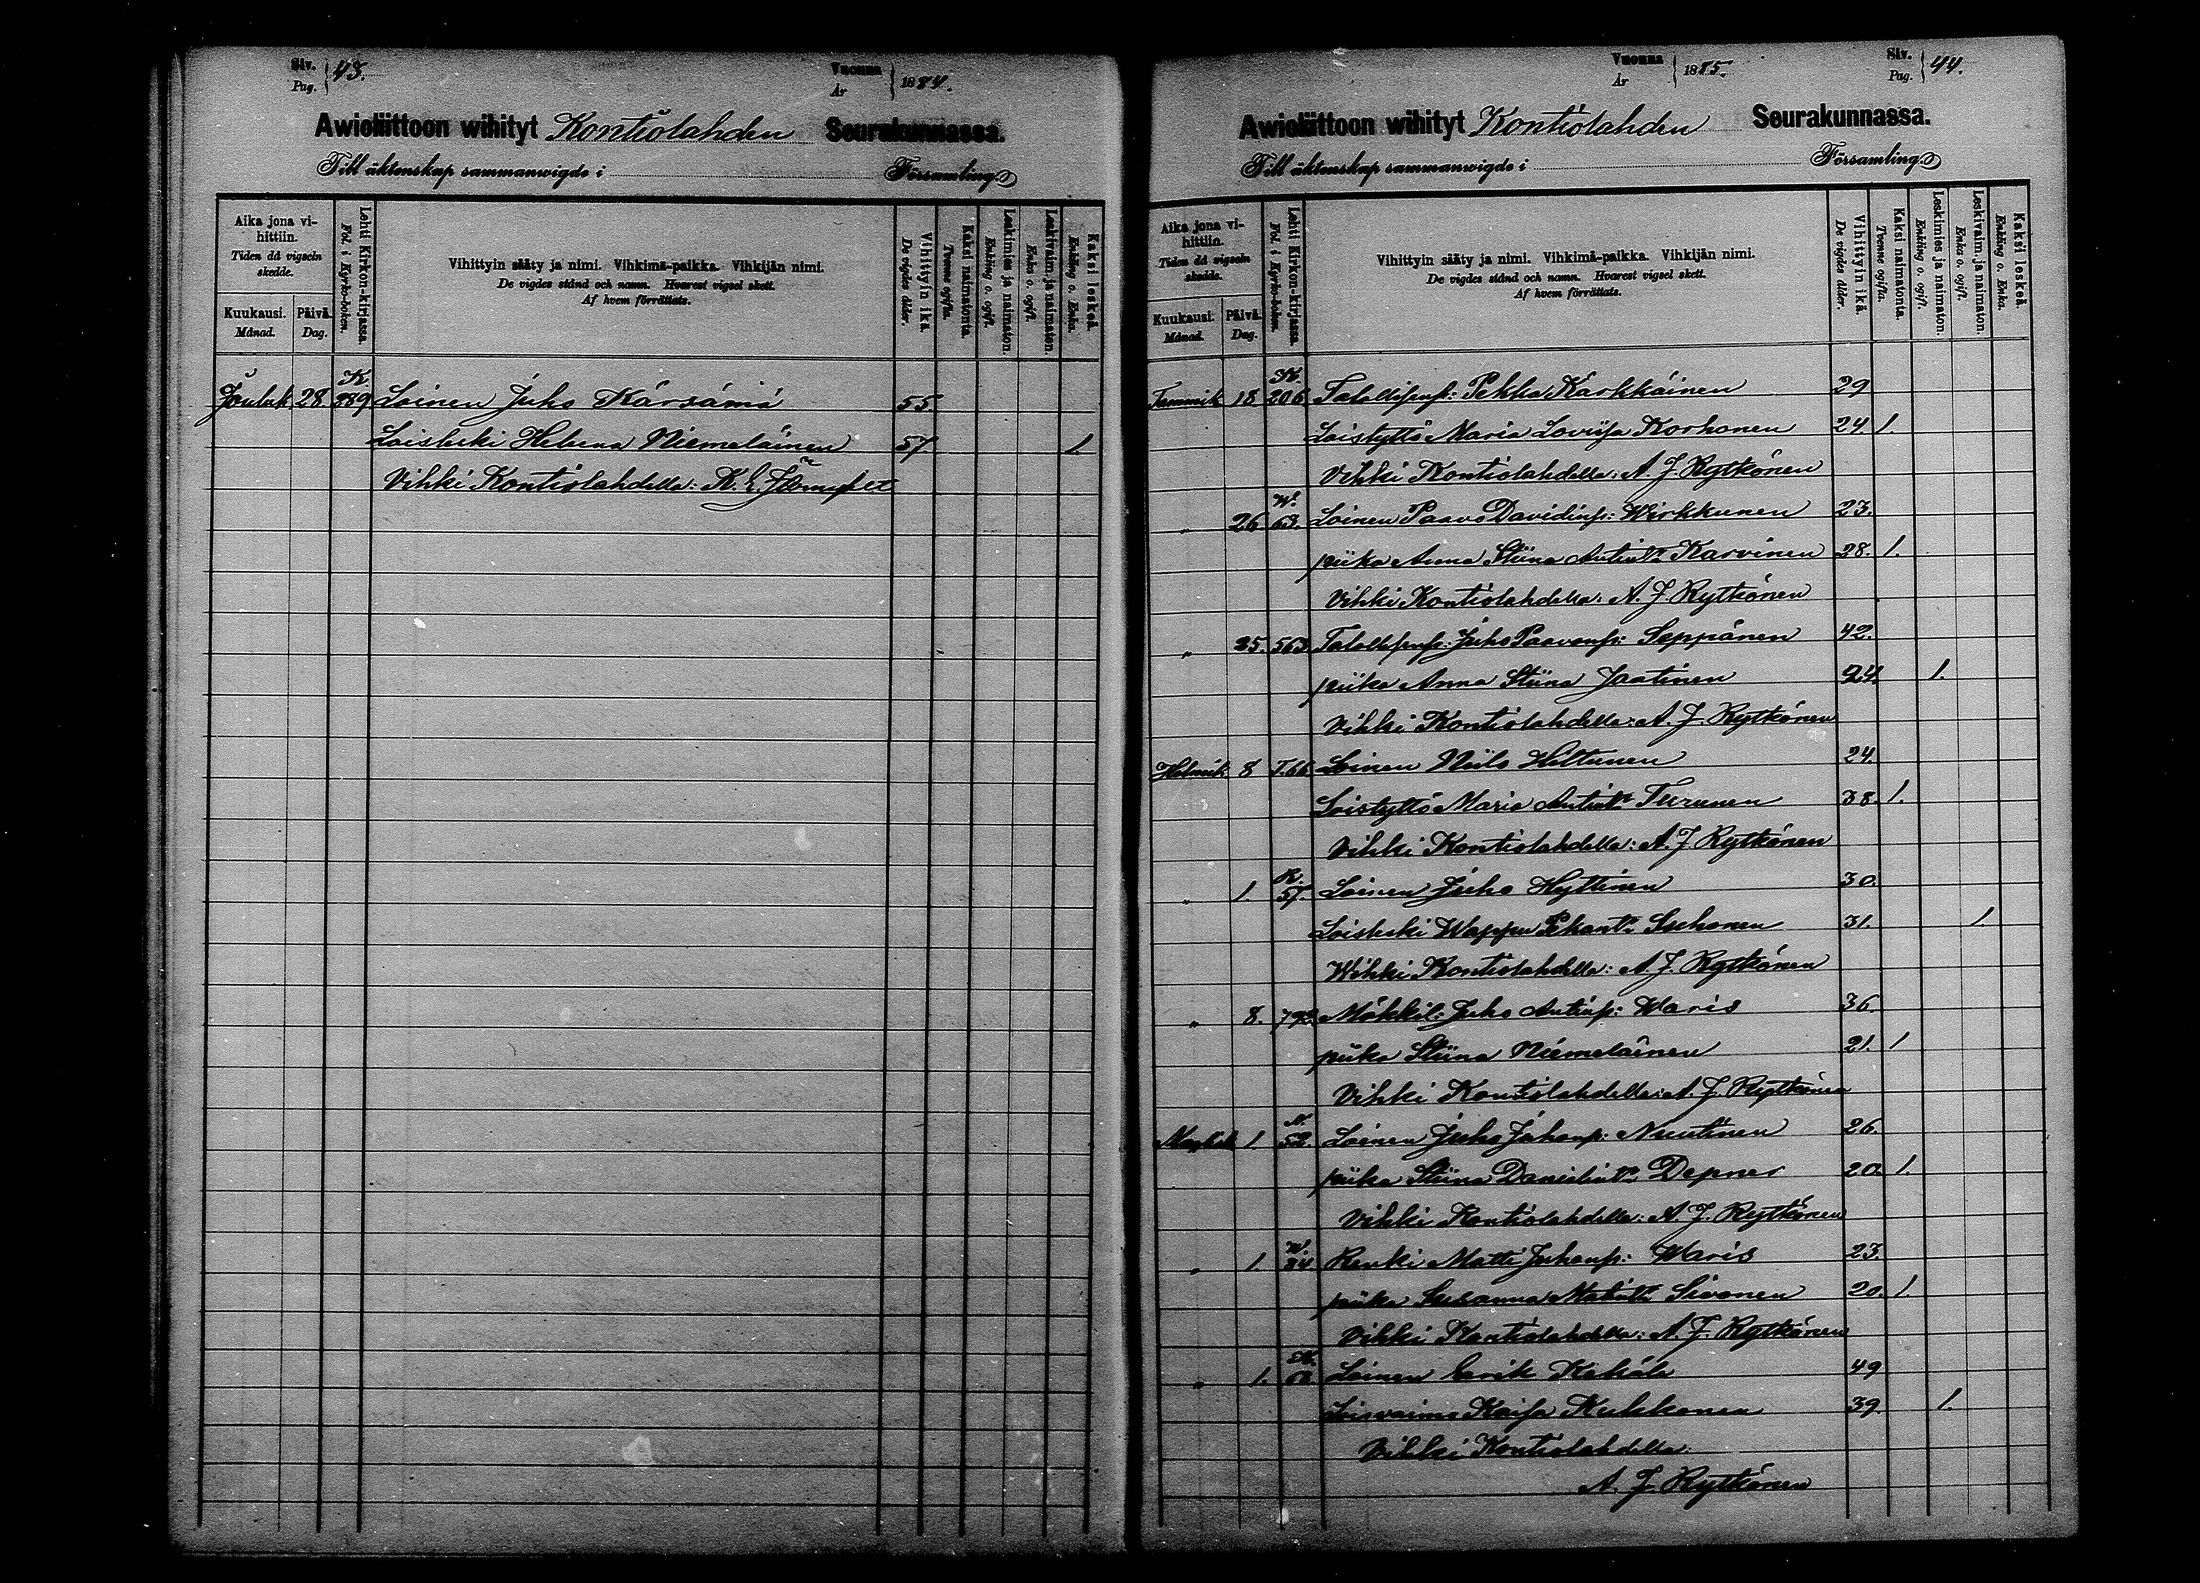 Siv. Pag. 43.
Vuonna År 1884.
Awioliittoon wihityt Kontiolahden Seurakunnassa.
Till äktenskap sammanwigde i Församling.
Aika jona vihittiin.
Tiden då vigseln skedde.
Kuukausi. Månad.
Päivä. Dag.
Lehti Kirkon-kirjassa.
Fol. i Kyrko-boken.
Vihittyin sääty ja nimi. Vihkimä-paikka. Vihkijän nimi.
De vigdes stånd och namn. Hvarest vigsel skett.
Af hvem förrättats.
Vihittyin ikä.
De vigdes ålder.
Kaksi naimatonta.
Tvenne ogifta.
Leskimies ja naimaton.
Enkling o. ogift.
Leskivaim. ja naimaton.
Enka o. ogift.
Kaksi leskeä.
Enkling o. Enka.
Jouluk 28 K. 389 Loinen Juho Kärsämä 55
Loisleski Helena Niemeläinen 57 1.
Vihki Kontiolahdella: K. E.
Vuonna År 1885.
Siv. Pag. 44.
Awioliittoon wihityt Kontiolahden Seurakunnassa.
Till äktenskap sammanwigde i Församling.
Aika jona vihittiin.
Tiden då vigseln skedde.
Kuukausi. Månad.
Päivä. Dag.
Lehti Kirkon-kirjassa.
Fol. i Kyrko-boken.
Vihittyin sääty ja nimi. Vihkimä-paikka. Vihkijän nimi.
De vigdes stånd och namn. Hvarest vigsel skett.
Af hvem förrättats.
Vihittyin ikä.
De vigdes ålder.
Kaksi naimatonta.
Tvenne ogifta.
Leskimies ja naimaton.
Enkling o. ogift.
Leskivaim. ja naimaton.
Enka o. ogift.
Kaksi leskeä.
Enkling o. Enka.
Tammik 18 K. 206 Talollisenp: Pekka Karkkäinen 29
Loistyttö Maria Lovisa Korhonen 24. 1.
Vihki Kontiolahdella: A. J. Rytkönen
" 26. W. 63. Loinen Paavo Davidinp: Wirkkunen 23.
piika Anna Stiina Antint: Karvinen 28. 1.
Vihki Kontiolahdella: A. J. Rytkönen
" 25. 563 Talollisenp: Juho Paavonp: Seppänen 42.
piika Anna Stiina Jaatinen 24. 1.
Vihki Kontiolahdella: A. J. Rytkönen
Helmik 8 T.66 Loinen Niilo Hiltunen 24
Loistyttö Maria Antint: Turunen 38. 1.
Vihki Kontiolahdella: A. J. Rytkönen
" 1. R. 57. Loinen Juho Hyttinen 30.
Loisleski Wappu Pekant: Suhonen 31. 1.
Wihki Kontiolahdella: A. J. Rytkönen
" 8. 792 Mäkkil: Juho Antinp: Waris 36.
piika Stiina Niemeläinen 21. 1
Vihki Kontiolahdella: A. J. Rytkönen
Maalisk 1. N. 52. Loinen Juho Juhanp: Nuutinen 26.
piika Stiina Danielint: Depner 20. 1.
Vihki Kontiolahdella: A. J. Rytkönen
" 1. W. 84 Renki Matti Juhanp: Waris 23.
piika Susanna Matint: Sivonen 20. 1.
Vihki Kontiolahdella: A. J. Rytkönen
" 1. Loinen Eerik Kakäle 49
Loisvaimo Kaisa Kukkonen 39. 1.
Vihki Kontiolahdella:
A. J. Rytkönen